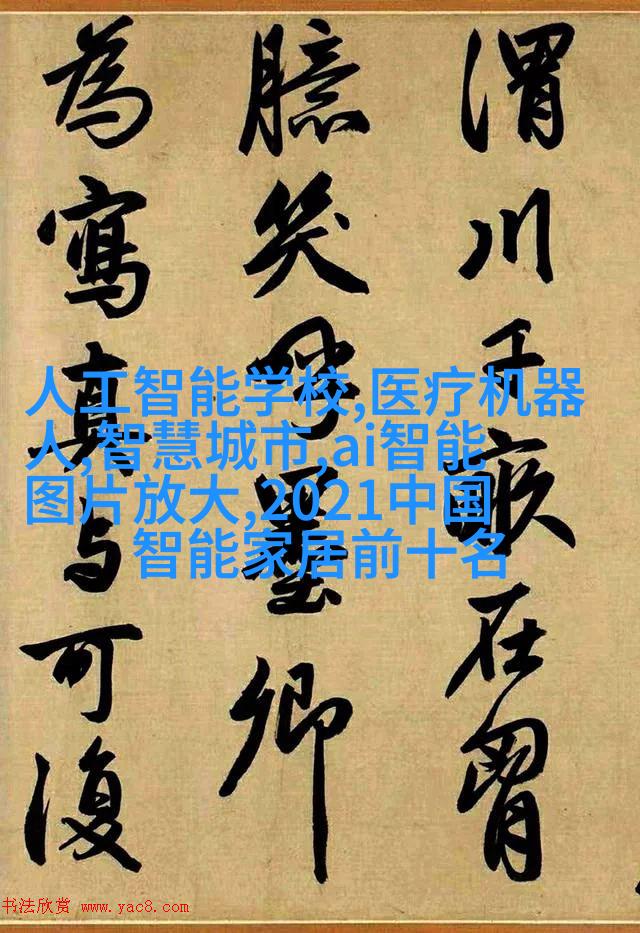 渭川千畝在胷
臆笑呼墨卿
為寫真与可復
人工智能学校,医疗机器
人,智慧城市,ai智能
图片放大,2021中国
智能家居前十名
书法欣赏 www.yac8.com